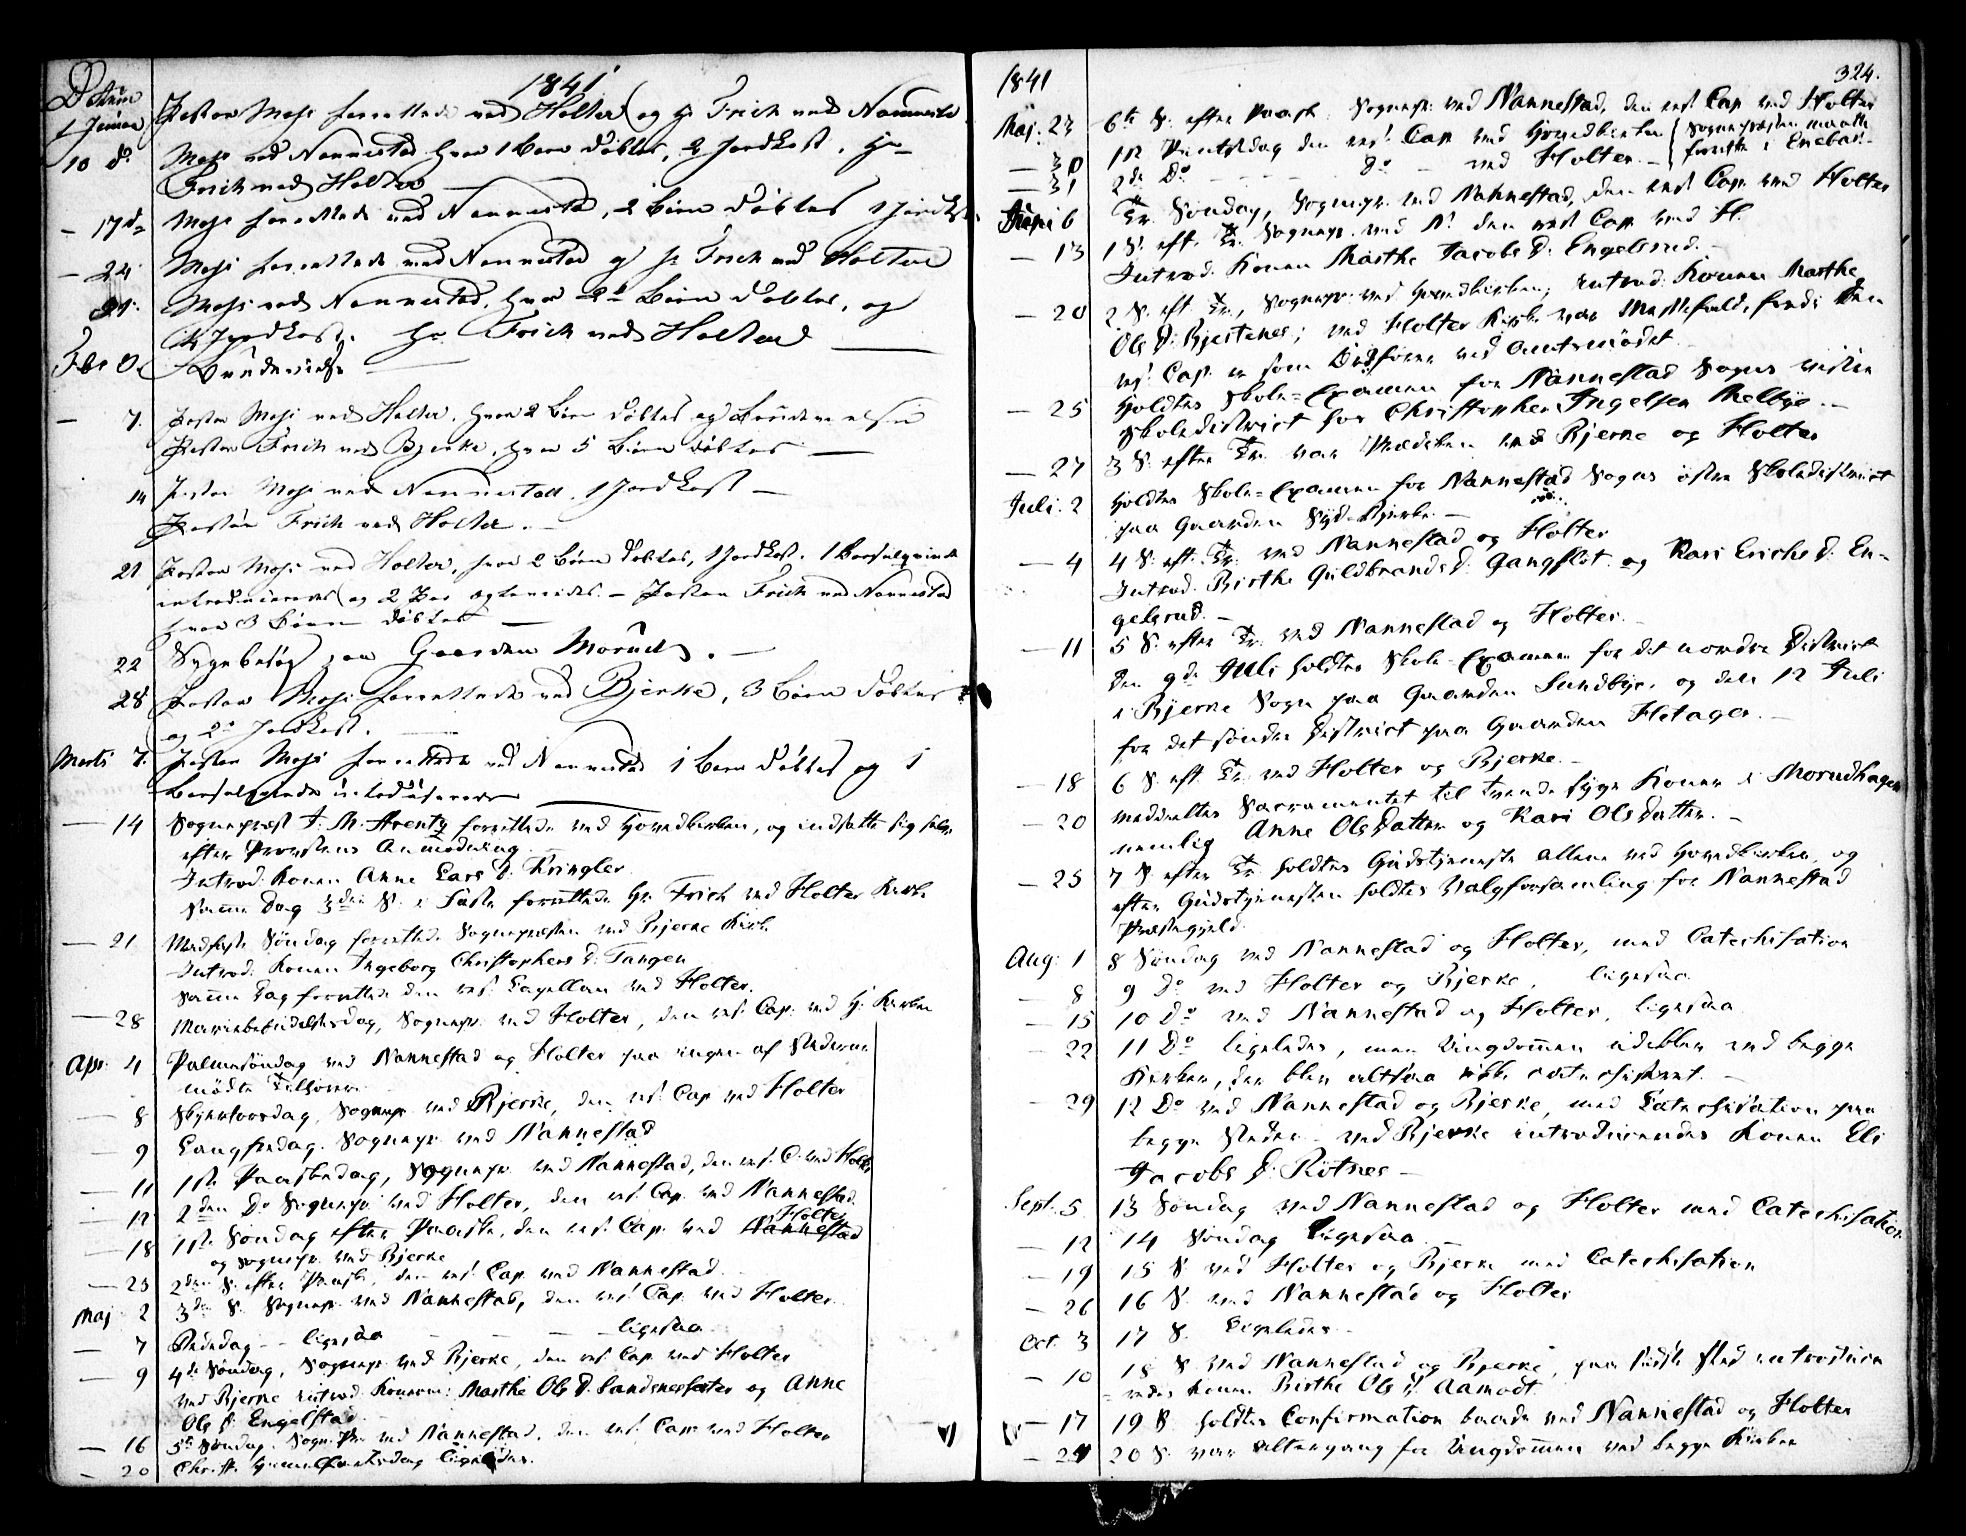 1841
Datum
1 Januar Pastor Mosi forrettede ved Holter og Hr Frich ved Nannestad
10 d. Mosi ved Nannestad hvor 1 Barn döbtes, 2 Jordkast. Hr
Frich ved Holter
— 17 d. Mosi forrettede ved Nannestad, 2 Börn döbtes 1 Jordkast
— 24 Mosi forrettede ved Nannestad og Hr Frich ved Holter
31. Mosi ved Nannestad, hvor 2 Börn döbtes, og
Jordkast. Hr. Frich ved Holter
Febr
— 7. Pastor Mosi ved Holter, hvor 2 Börn döbtes og
Pastor Frich ved Bjerke, hvor 5 Börn döbtes
14 Pastor Mosi ved Nannestad, 1 Jordkast —
Pastor Frich ved Holter. —
21 Pastor Mosi ved Holter, hvor 2 Börn döbtes, 1 Jordkast. 1 Barselqvinde
introduceredes og 2 Par ægteviedes. — Pastor Frich ved Nannestad
hvor 3 Börn döbtes
22 Sygebesög paa Gaarden Morud. —
28 Pastor Mosi forrettede ved Bjerke, 3 Börn döbtes
og 2 Jordkast.
Marts 7. Pastor Mosi forrettede ved Nannestad 1 Barn döbtes og 1
Barselqvinde introduceredes
— 14 Sognepræst F. M. Arentz forrettede ved Hovedkirken, og indsatte sig selv
efter Provstens Anmodning.
Introd. Konen Anne Lars D. Kringler
Samme Dag 3die S. i Faste forrettede Hr. Frich ved Holter Kirke
— 21 Midfaste Söndag forrettede Sognepræsten ved Bjerke Kirke
Introd. Konen Ingeborg Christophers D. Tangen
Samme Dag forrettede den res. Capellan ved Holter.
— 28 Mariæbebudelsesdag, Sognepr. ved Holter, den res. Cap. ved H. Kirken
Apr. 4 Palmesöndag ved Nannestad og Holter paa ingen af Stederne
mödte Tilhörere
— 8 Skjærtorsdag, Sognepr. ved Bjerke, den res. Cap. ved Holter
— 9 Langfredag. Sognepr. ved Nannestad
— 11 1ste Paaskedag, Sognepr. ved Nannestad, den res. C. ved Holter
— 12 2den Do Sognepr. ved Holter, den res. Cap. ved Nannestad
— 18 1ste Söndag efter Paaske, den res. Cap. ved Nannestad Holter
og Sognepr. ved Bjerke
— 25 2den S. efter Paaske, den res. Cap. ved Nannestad
Maj 2 3die S. Sognepr. ved Nannestad, den res. Cap. ved Holter
— 7 Bededag — ligesaa — — — ligesaa
— 9 4de Söndag, Sognepr. ved Bjerke, den res. Cap. ved Holter
ved Bjerke introd. Konerne: Marthe Ols D. Sandsneseter og Anne
Ols D. Engelstad
— 16 5te Söndag. Sogne Pr. ved Nannestad, den res. Cap. ved Holter
— 20 Christi Himmelfartsdag ligeledes.
1841
324.
Maj. 23 6te S. efter Paask. Sognepr. ved Nannestad, den res. Cap. ved Holter
— 30 1ste Pintsedag den res. Cap. ved Hovedkirken { Sognepræsten maatte
— 31 2den Do — — — do — ved Holter — { forrette i Enebak.
Juni 6 Tr. Söndag, Sognepr. ved Nannestad, den res. Cap. ved Holter
— 13 1 S. eft. Tr. Sognepr. ved N. den res. Cap. ved H.
Introd. Konen Marthe Jacobs D. Engelsrud. —
— 20 2 S. eft. Tr., Sognepr. ved Hovedkirken, introd. Konen Marthe
Ols D. Bjertenes; ved Holter Kirke var Messefald, fordi den
res. Cap. var som Ordförer ved Amtmödet.
— 25 Holdtes Skole-Examen for Nannestad Sogns vestre
Skoledistrict hos Christopher Ingelsen Melbye. —
— 27 3 S. efter Tr. var Prædiken ved Bjerke og Holter
Juli. 2 Holdtes Skole-Examen for Nannestad Sogns östre Skoledistrict
paa Gaarden Syd-Kjerke. —
— 4 4 S. eft. Tr. ved Nannestad og Holter
Introd. Birthe Guldbrands D. Gangflot og Kari Erichs D. En-
gelsrud. —
— 11 5 S. efter Tr. ved Nannestad og Holter. —
Den 9de Juli holdtes Skole-Examen for det nordre District
i Bjerke Sogn paa Gaarden Sundbye, og den 12 Juli
for det söndre District paa Gaarden Hetager. —
— 18 6 S. eft. Tr. ved Holter og Bjerke. —
— 20 meddeeltes Sacramentet til tvende syge Koner i Morudhagen
nemlig Anne Olsdatter og Kari Olsdatter. —
— 25 7 S. efter Tr. holdtes Gudstjeneste allene ved Hovedkirken, og
efter Gudstjenesten holdtes Valgforsamling for Nannestad
Præstegjeld.
Aug. 1 8 Söndag ved Nannestad og Holter, med Catechisation
— 8 9 Do ved Holter og Bjerke, ligesaa
— 15 10 Do ved Nannestad og Holter, ligesaa
— 22 11 Do ligeledes, men Ungdommen udeblev ved begge
Kirker, der blev altsaa ikke catechiseret. —
— 29 12 Do ved Nannestad og Bjerke, med Catechisation paa
begge Steder — ved Bjerke introduceredes Konen Eli
Jacobs D. Rötnes —
Sept. 5 13 Söndag ved Nannestad og Holter med Catechisation
— 12 14 Söndag ligesaa —
— 19 15 S. ved Holter og Bjerke med Catechisation
— 26 16 S. ved Nannestad og Holter
Oct. 3 17 S. Ligeledes. —
— 10 18 S. ved Nannestad og Bjerke, paa sidste Sted introduce-
redes Konen Birthe Ols D. Aamodt.
— 17 19 S. holdtes Confirmation baade ved Nannestad og Holter
— 24 20 S. var Altergang for Ungdommen ved begge Kirker